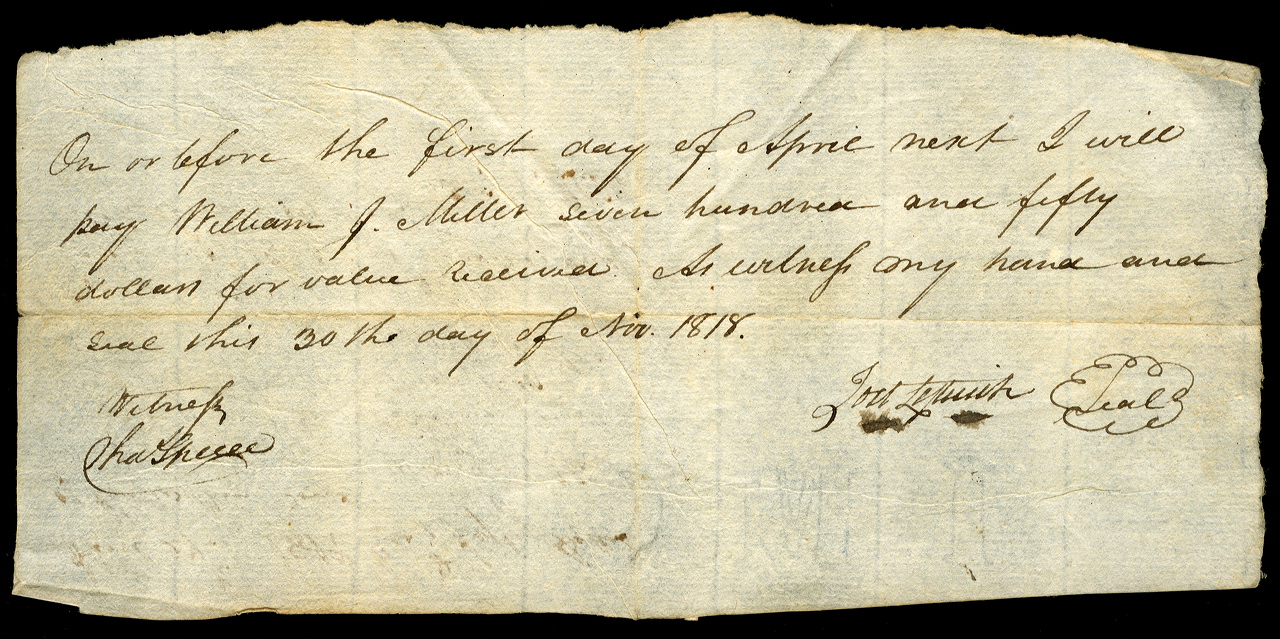 On or before the first day of April next I will
pay William J. Miller seven hundred and fifty
dollars for value received. As witness my hand and
seal this 30 the day of Nov. 1818.
Joel Leftwich Seal
Witness
Chas Speece